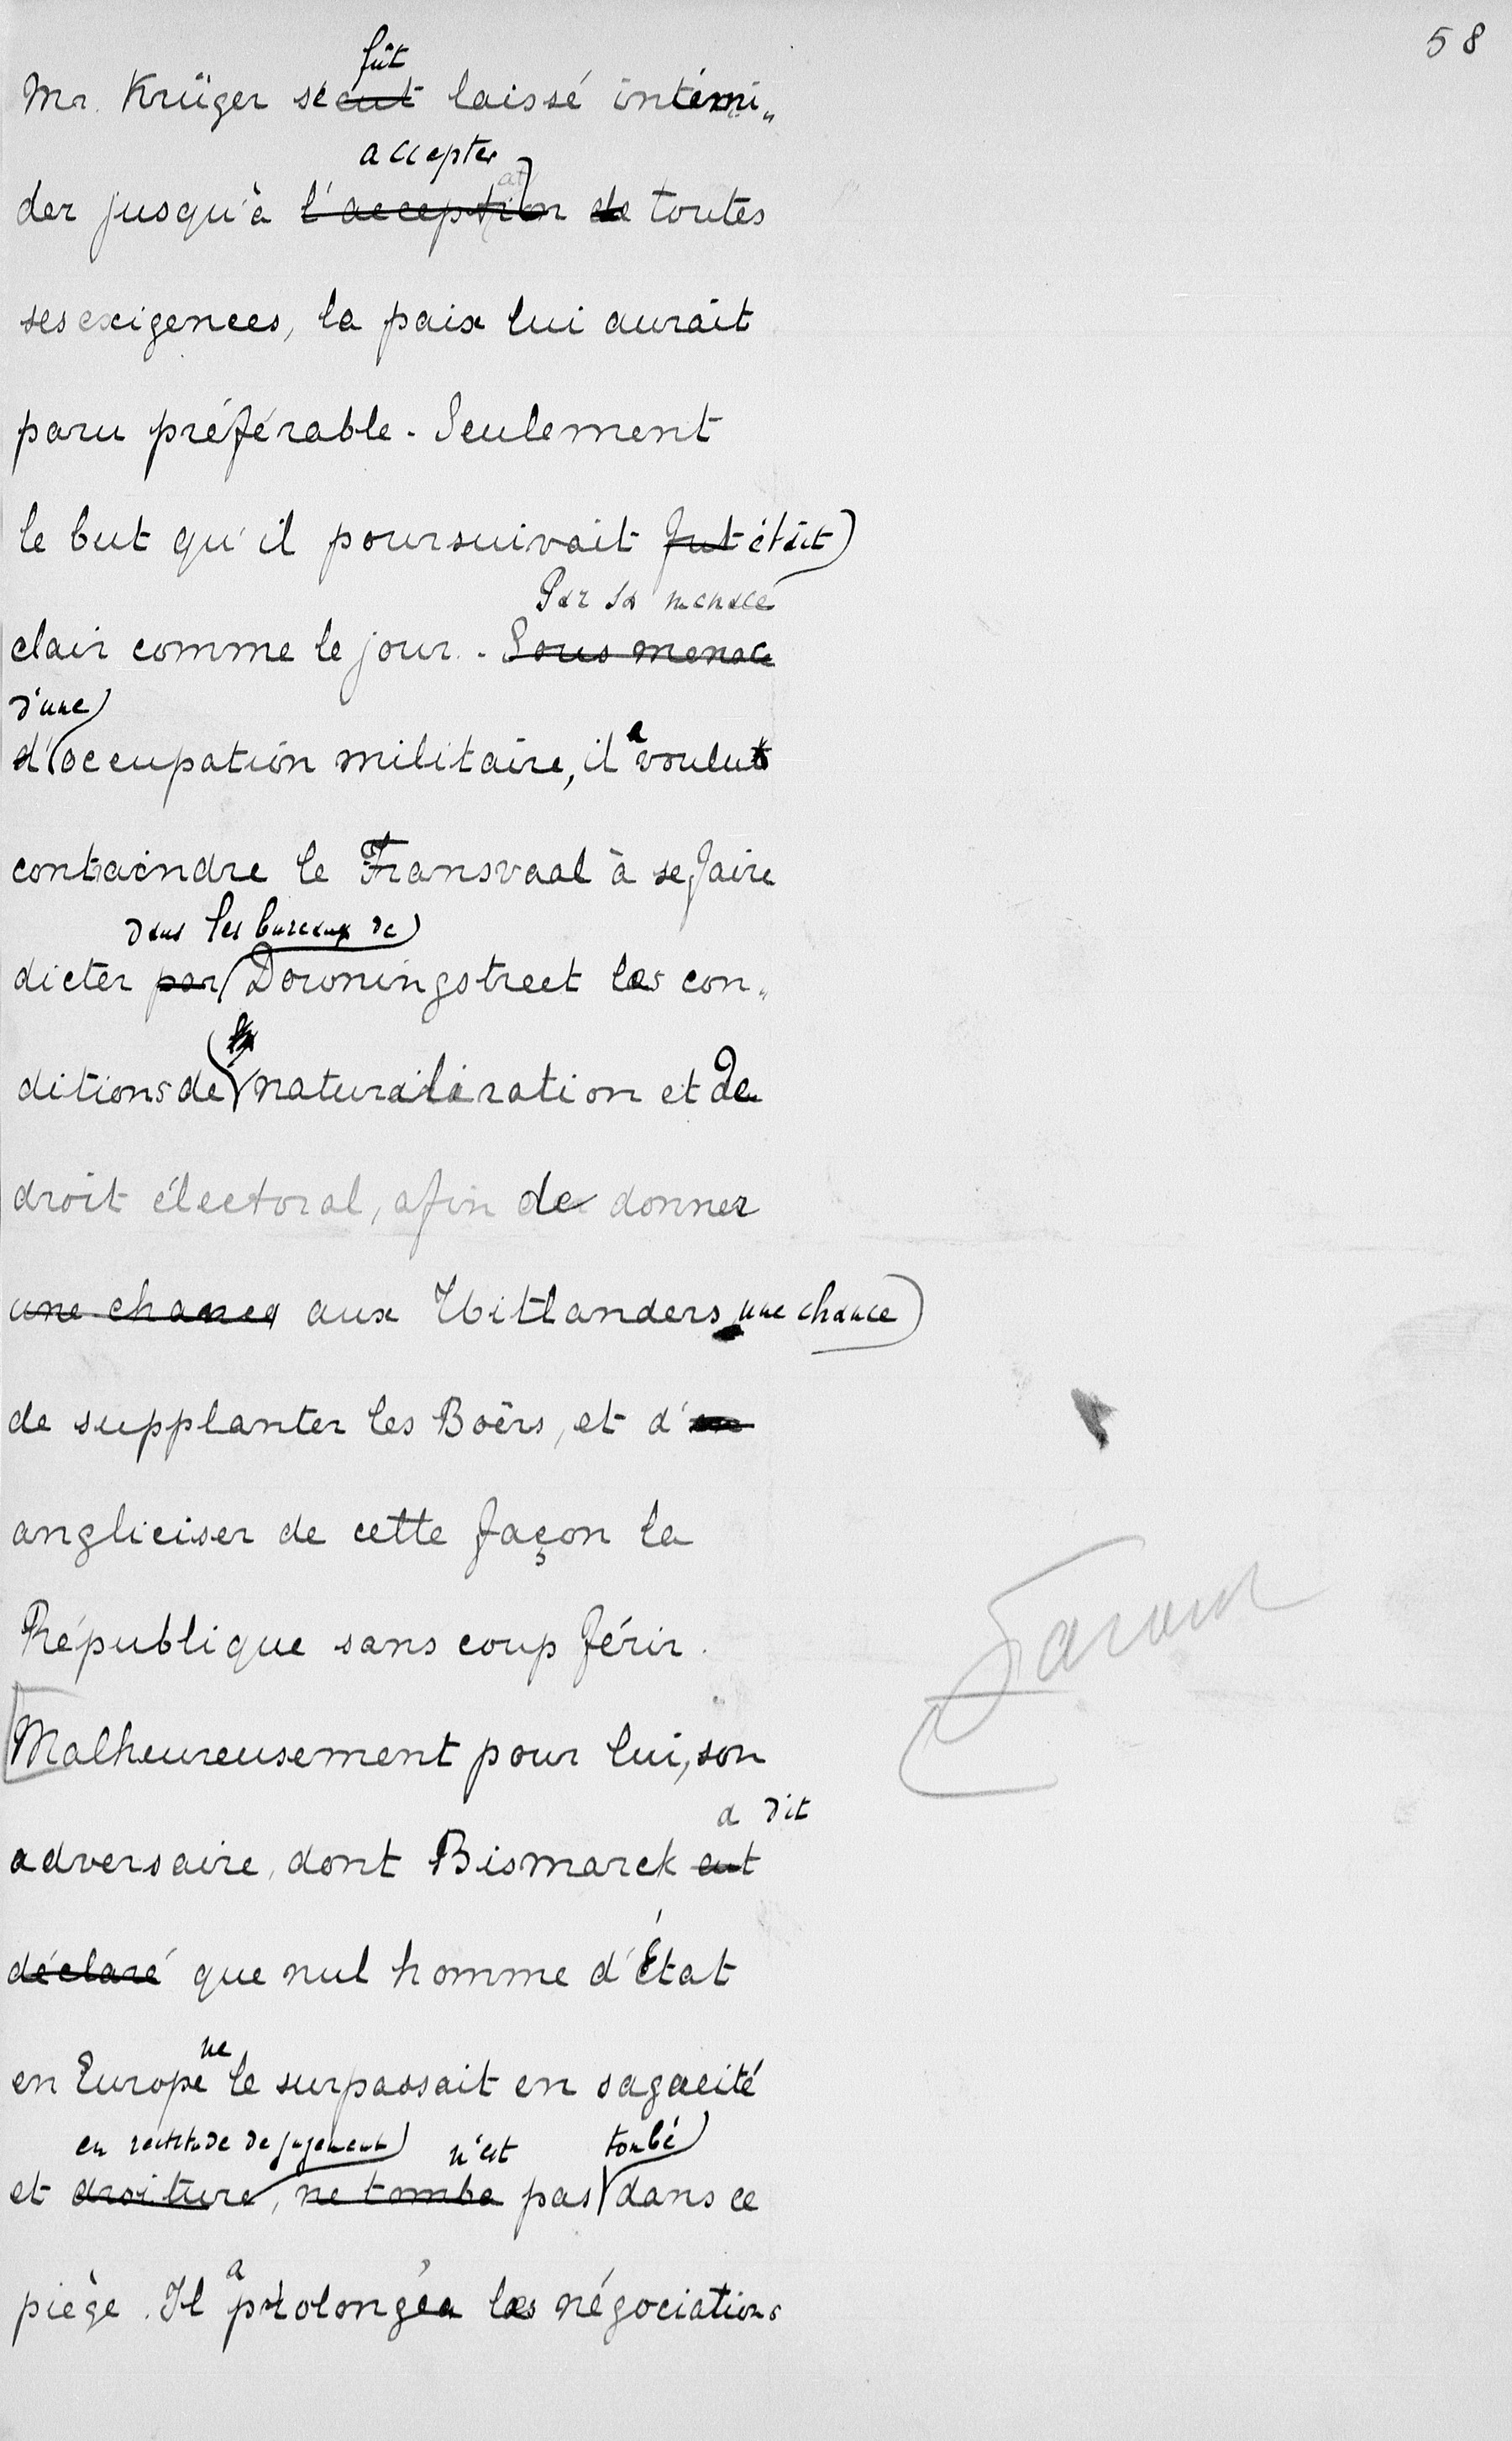 58
fût
Mr. Krüger se eut laissé intimi„
accepter
der jusqu'à l'acception de toutes
ses exigences, la paix lui aurait
paru préférable. Seulement
le but qu'il poursuivait fut était
Par sa menace
clair comme le jour. Sous menace
d'une
d'occupation militaire, il a voulut
contraindre le Transvaal à se faire
dans les bureaux de
dicter par Downingstreet les con„
ditions de naturalisation et de
droit électoral, afin de donner
une chance aux Uitlanders une chance
de supplanter les Boërs, et d'en
angliciser de cette façon la
République sans coup férir.
Malheureusement pour lui, son
a dit
adversaire, dont Bismarck eut
déclaré que nul homme d'État
ne
en Europe le surpassait en sagacité
en rectitude de jugement n'est tombé
et droiture, ne tomba pas dans ce
a
piège. Il prolongea les négociations